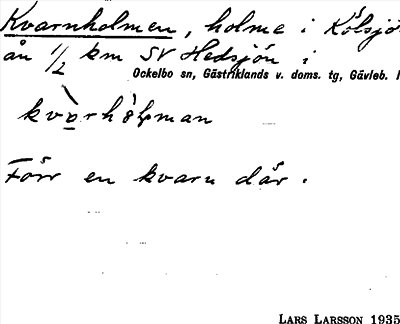 Kvarnholmen, holme i Kölsjö
ån 1/2 km SV Hedsjön i
Ockelbo sn, Gästriklands v. doms. tg, Gävleb. l
Förr en kvarn där.
LARS LARSSON 1935